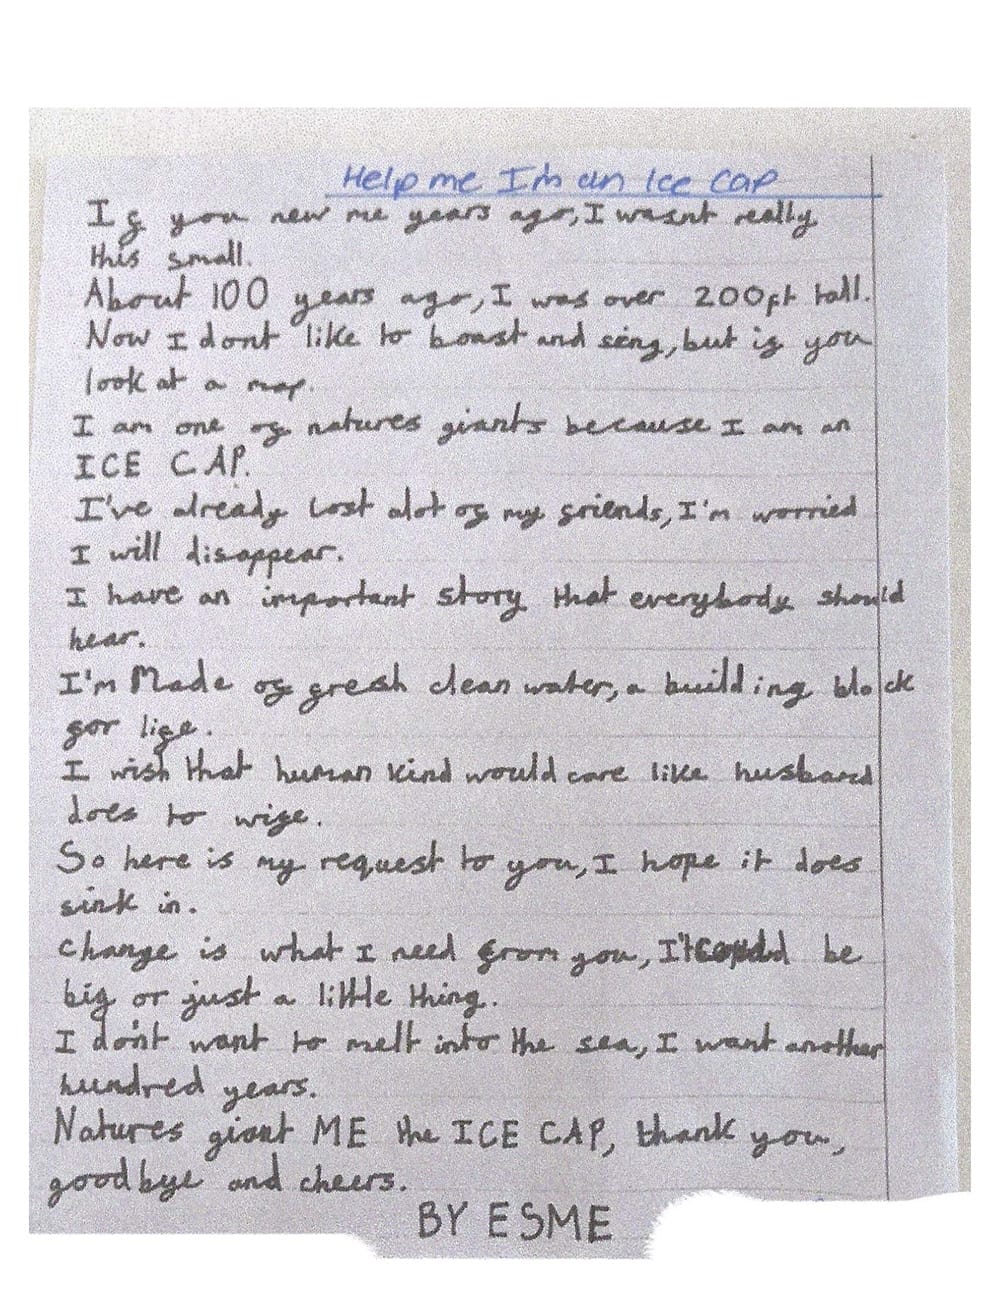 Help me I'm an Ice Cap
If you new me years ago, I wasnt really
this small.
About 100 years ago, I was over 200ft tall.
Now I dont like to boast and sing, but if you
look at a map.
I am one of natures giants because I am an
ICE CAP.
I've already lost alot of my friends, I'm worried
I will disappear.
I have an important story that everybody should
hear.
I'm Made of fresh clean water, a building block
for life.
I wish that human kind would care like husband
does to wife.
So here is my request to you, I hope it does
sink in.
Change is what I need from you, It could be
big or just a little thing.
I don't want to melt into the sea, I want another
hundred years.
Natures giant ME the ICE CAP, thank you,
goodbye and cheers.
BY ESME